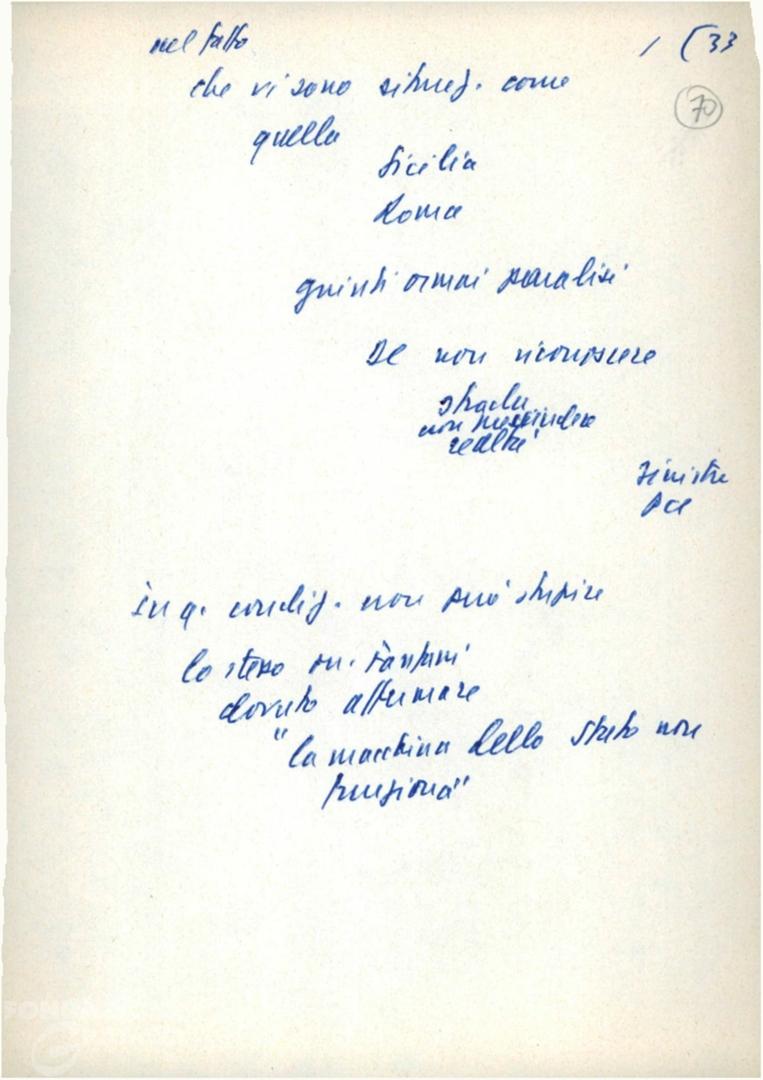 nel fatto
/ (33
70
che vi sono situaz. come
quella
Sicilia
Roma
quindi ormai paralisi
se non riconoscere
strada
non prescindere
realtà
sinistre
Pci
In q. condiz. non può stupire
lo stesso on. Fanfani
dovuto affermare
"la macchina dello Stato non
funziona"